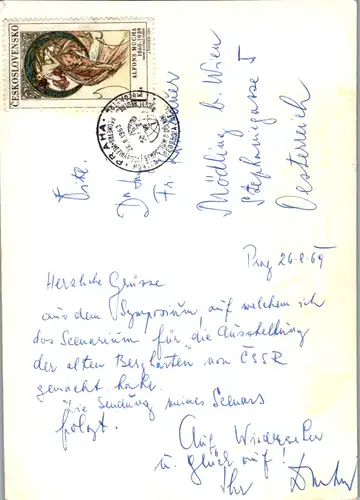 ČESKOSLOVENSKO
ALFONS MUCHA
1860 1939
PRAHA
Fr.
Mödling b. Wien
Stephaniegasse 5
Oesterreich
Prag 26.8.69
Herzliche Grüsse
aus dem Symposium, auf welchem ich
das Scenarium für die Ausstellung
der alten Bergkarten von ČSSR
gemacht habe.
Die Sendung meines Scenars
folgt.
Auf Wiedersehen
u. glück auf!
Ihr